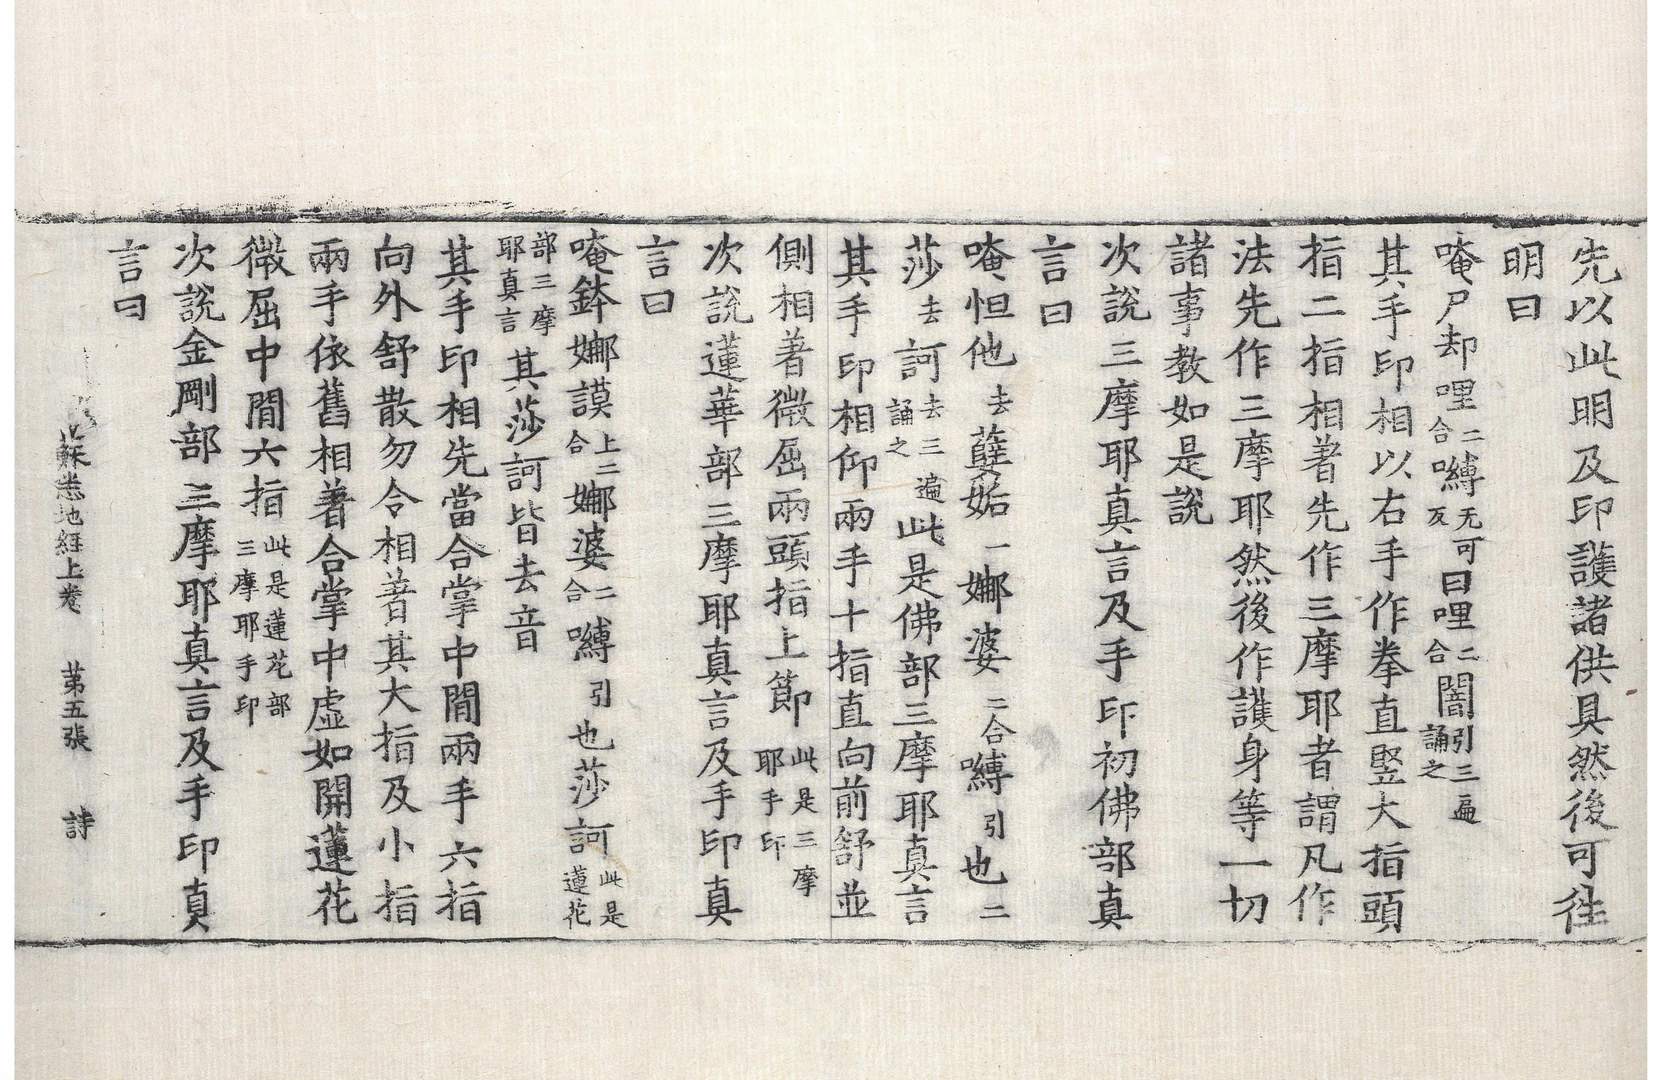 先以此明及印護諸供具然後可往
明曰
唵尸却哩二合嚩无可反曰哩二合闇引三遍誦之
其手印相以右手作拳直竪大指頭
指二指相著先作三摩耶者謂凡作
法先作三摩耶然後作護身等一切
諸事教如是說
次說三摩耶真言及手印初佛部真
言曰
唵怛他去蘖妬一娜婆二合嚩引也二
莎去訶去三遍誦之此是佛部三摩耶真言
其手印相仰兩手十指直向前舒並
側相著微屈兩頭指上節此是三摩耶手印
次說蓮華部三摩耶真言及手印真
言曰
唵鉢娜謨上二合娜婆二合嚩引也莎訶此是蓮花
部三摩耶真言其莎訶皆去音
其手印相先當合掌中間兩手六指
向外舒散勿令相著其大指及小指
兩手依舊相著合掌中虛如開蓮花
微屈中間六指此是蓮花部三摩耶手印
次說金剛部三摩耶真言及手印真
言曰
蘇悉地經上卷 第五張 詩